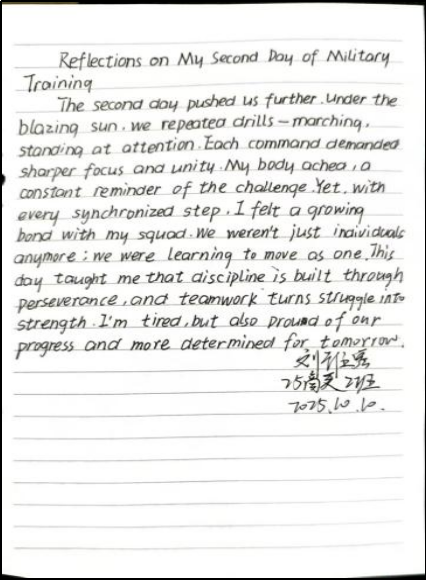 Reflections on My Second Day of Military
Training
The second day pushed us further. Under the
blazing sun, we repeated drills – marching,
standing at attention. Each command demanded
sharper focus and unity. My body ached, a
constant reminder of the challenge. Yet, with
every synchronized step, I felt a growing
bond with my squad. We weren't just individuals
anymore; we were learning to move as one. This
day taught me that discipline is built through
perseverance, and teamwork turns struggle into
strength. I'm tired, but also pround of our
progress and more determined for tomorrow.
刘
25商英2班
2025.10.10.